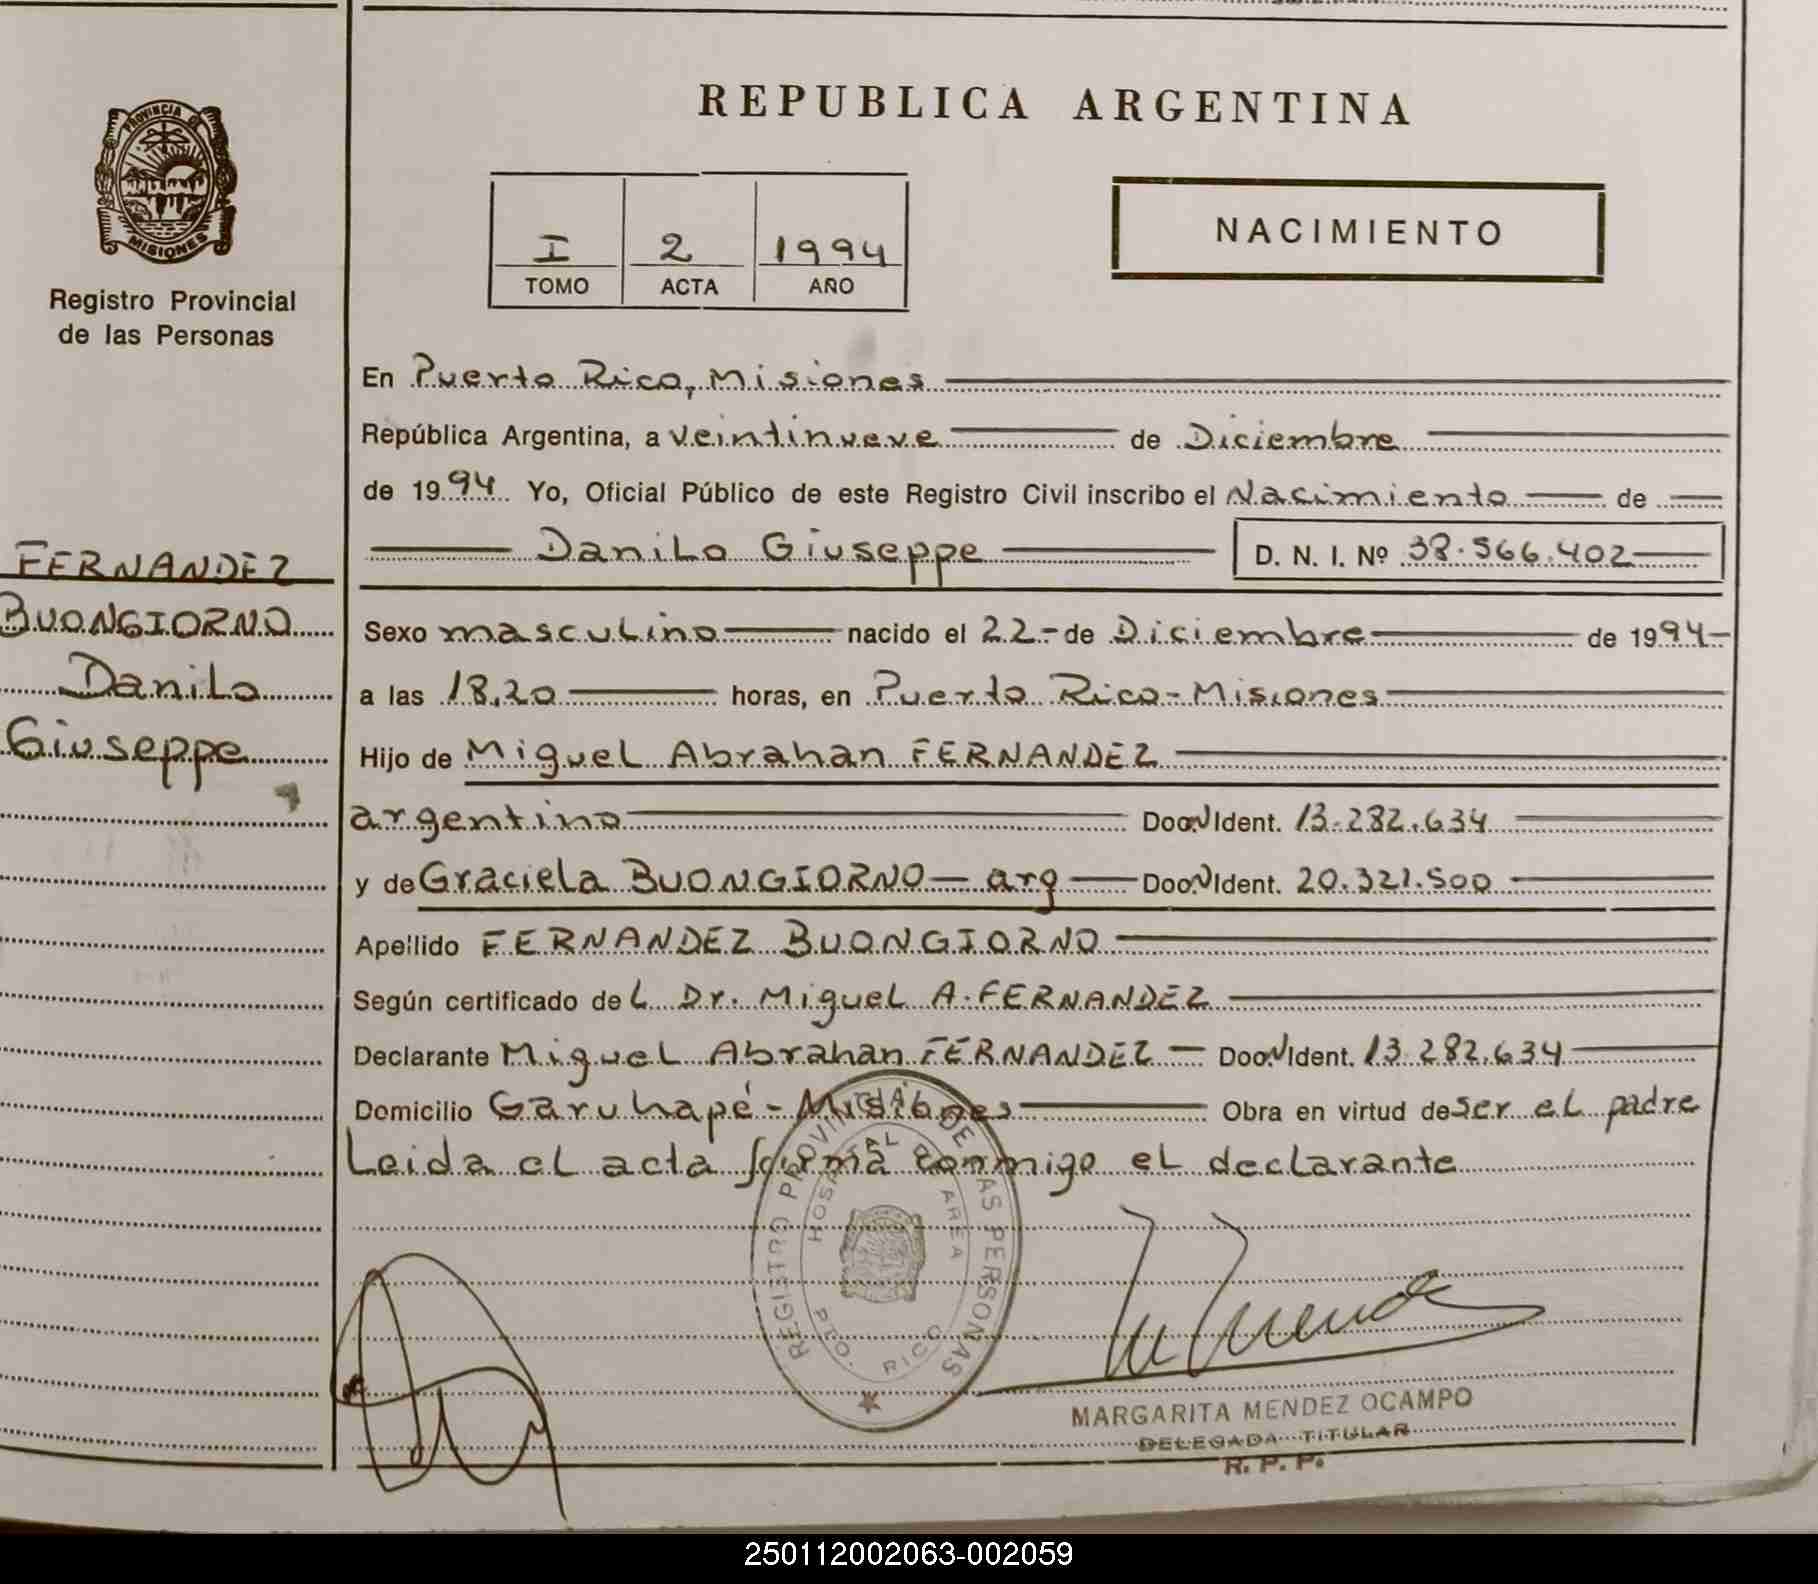 REPUBLICA ARGENTINA
PROVINCIA DE
MISIONES
Registro Provincial
de las Personas
I 2 1994
TOMO ACTA AÑO
NACIMIENTO
FERNANDEZ
BUONGIORNO
Danilo
Giuseppe
En Puerto Rico, Misiones
República Argentina, a veintinueve de Diciembre
de 1994 Yo, Oficial Público de este Registro Civil inscribo el Nacimiento de
Danilo Giuseppe D. N. I. Nº 38.566.402
Sexo masculino nacido el 22 de Diciembre de 1994
a las 18,20 horas, en Puerto Rico - Misiones
Hijo de Miguel Abrahan FERNANDEZ
argentino Ident. 13.282.634
y de Graciela BUONGIORNO - arg Ident. 20.321.500
Apellido FERNANDEZ BUONGIORNO
Según certificado del Dr. Miguel A. FERNANDEZ
Declarante Miguel Abrahan FERNANDEZ Ident. 13.282.634
Domicilio Garuhapé - Misiones Obra en virtud de ser el padre
Leida el acta firma conmigo el declarante
REGISTRO PROVINCIAL DE LAS PERSONAS
HOSPITAL DE AREA
PTO. RICO
MARGARITA MENDEZ OCAMPO
DELEGADA TITULAR
R. P. P.
250112002063-002059